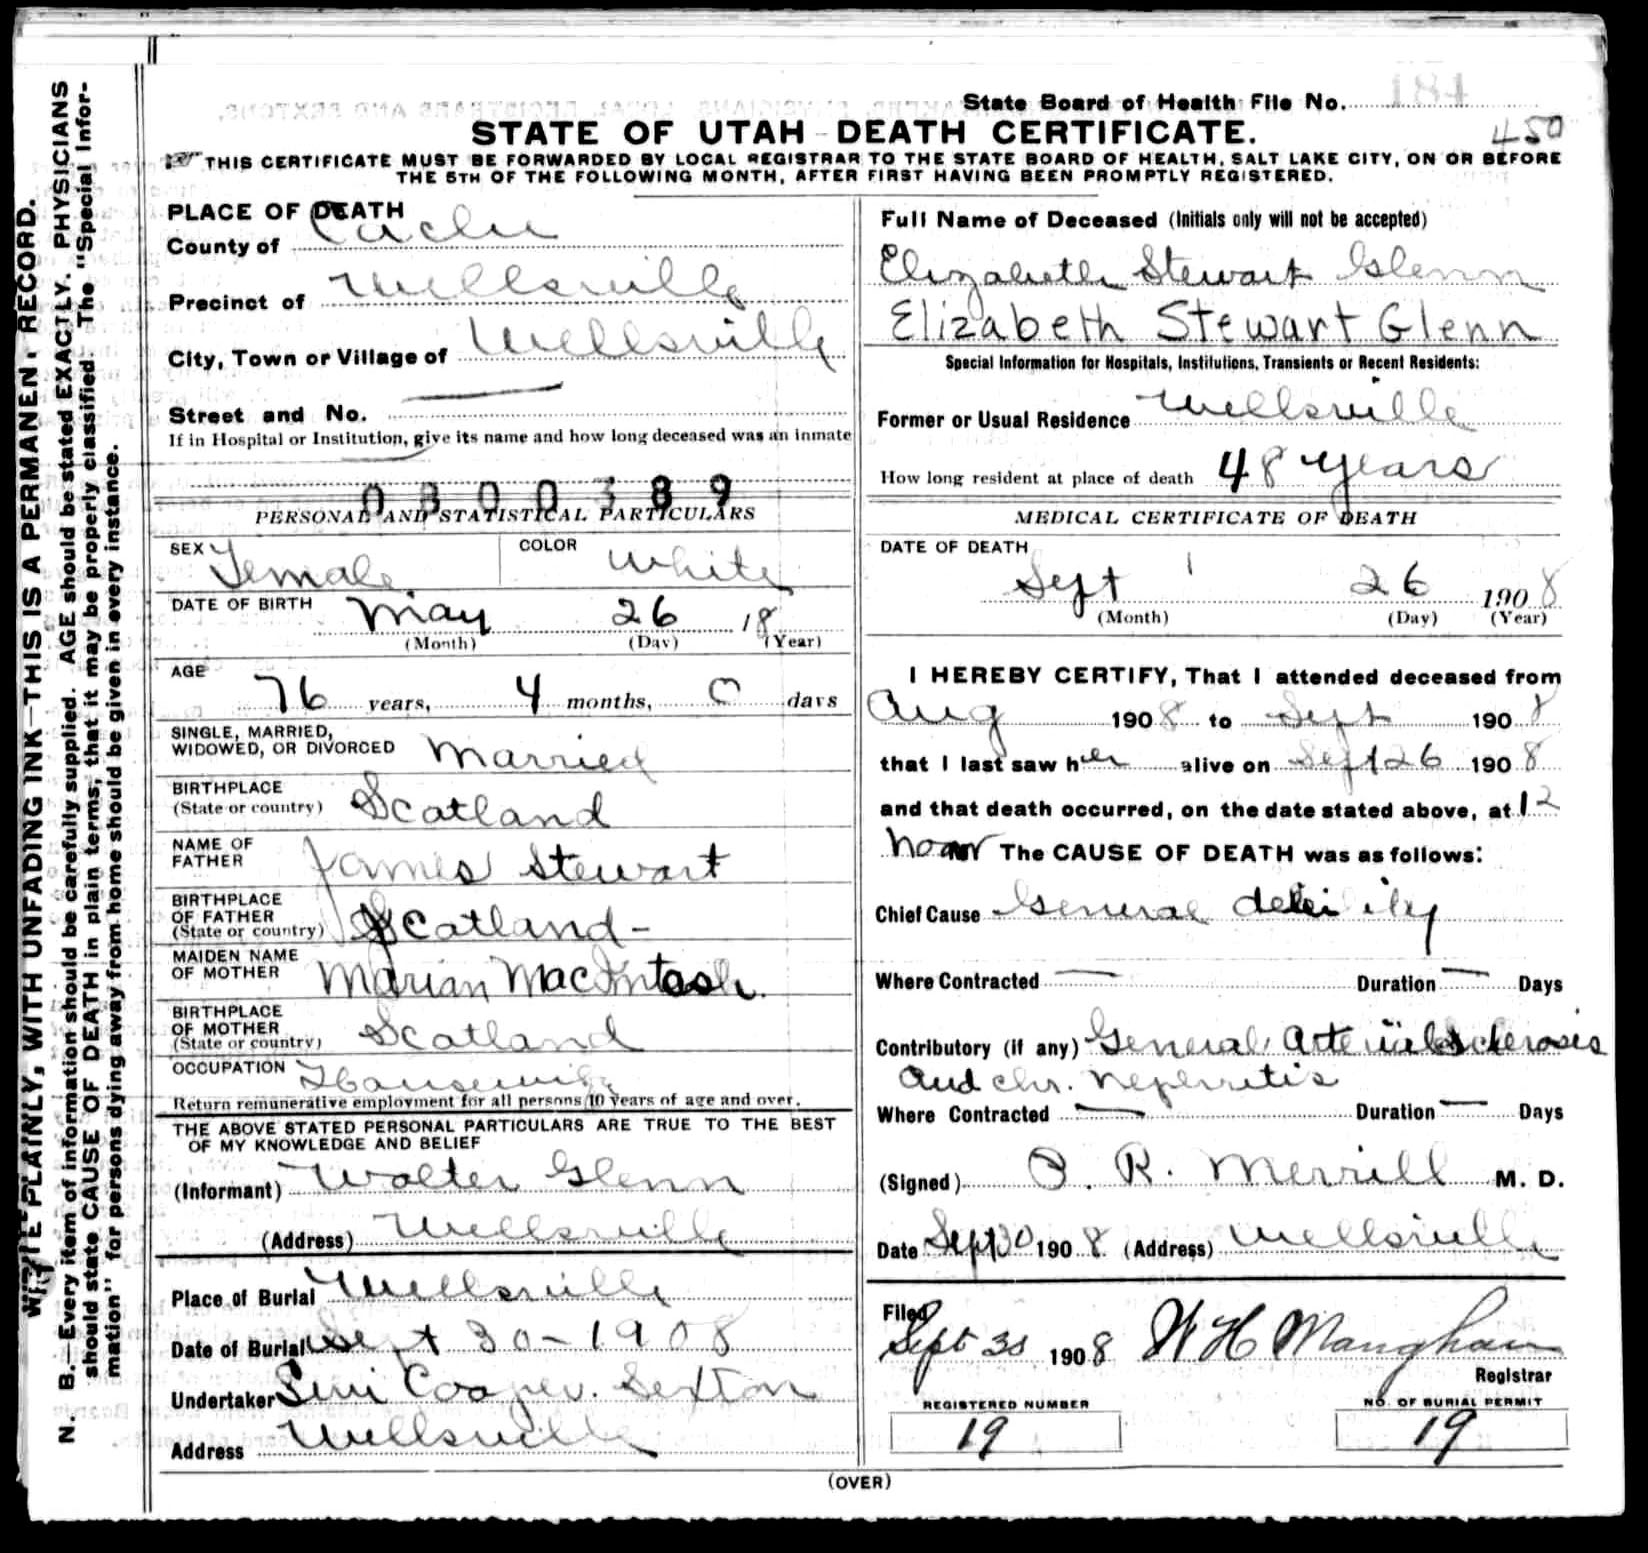 184
State Board of Health File No.
STATE OF UTAH - DEATH CERTIFICATE.
450
THIS CERTIFICATE MUST BE FORWARDED BY LOCAL REGISTRAR TO THE STATE BOARD OF HEALTH, SALT LAKE CITY, ON OR BEFORE
THE 5TH OF THE FOLLOWING MONTH, AFTER FIRST HAVING BEEN PROMPTLY REGISTERED.
WRITE PLAINLY, WITH UNFADING INK—THIS IS A PERMANENT RECORD.
N. B.—Every item of information should be carefully supplied. AGE should be stated EXACTLY. PHYSICIANS
should state CAUSE OF DEATH in plain terms, that it may be properly classified. The "Special Infor-
mation" for persons dying away from home should be given in every instance.
PLACE OF DEATH
County of Cache
Precinct of Wellsville
City, Town or Village of Wellsville
Street and No.
If in Hospital or Institution, give its name and how long deceased was an inmate
0300389
PERSONAL AND STATISTICAL PARTICULARS
SEX Female COLOR White
DATE OF BIRTH May 26 18
(Month) (Day) (Year)
AGE 76 years, 4 months, 0 days
SINGLE, MARRIED,
WIDOWED, OR DIVORCED Married
BIRTHPLACE
(State or country) Scatland
NAME OF
FATHER James Stewart
BIRTHPLACE
OF FATHER
(State or country) Scatland -
MAIDEN NAME
OF MOTHER Marian MacIntash.
BIRTHPLACE
OF MOTHER
(State or country) Scatland
OCCUPATION Housewife
Return remunerative employment for all persons 10 years of age and over.
THE ABOVE STATED PERSONAL PARTICULARS ARE TRUE TO THE BEST
OF MY KNOWLEDGE AND BELIEF
(Informant) Walter Glenn
(Address) Wellsville
Place of Burial Wellsville
Date of Burial Sept 30-1908
Undertaker Cooper. Sexton
Address Wellsville
Full Name of Deceased (Initials only will not be accepted)
Elizabeth Stewart Glenn
Elizabeth Stewart Glenn
Special Information for Hospitals, Institutions, Transients or Recent Residents:
Former or Usual Residence Wellsville
How long resident at place of death 48 years
MEDICAL CERTIFICATE OF DEATH
DATE OF DEATH
Sept 26 1908
(Month) (Day) (Year)
I HEREBY CERTIFY, That I attended deceased from
Aug 1908 to Sept 1908
that I last saw her alive on Sept 26 1908
and that death occurred, on the date stated above, at 12
noon The CAUSE OF DEATH was as follows:
Chief Cause General debility
Where Contracted — Duration — Days
Contributory (if any) General Arterial Sclerosis
and chr. nephritis
Where Contracted — Duration — Days
(Signed) O. R. Merrill M. D.
Date Sept 30 1908 (Address) Wellsville
Filed
Sept 30 1908 W H Maughan
Registrar
REGISTERED NUMBER
19
NO. OF BURIAL PERMIT
19
(OVER)